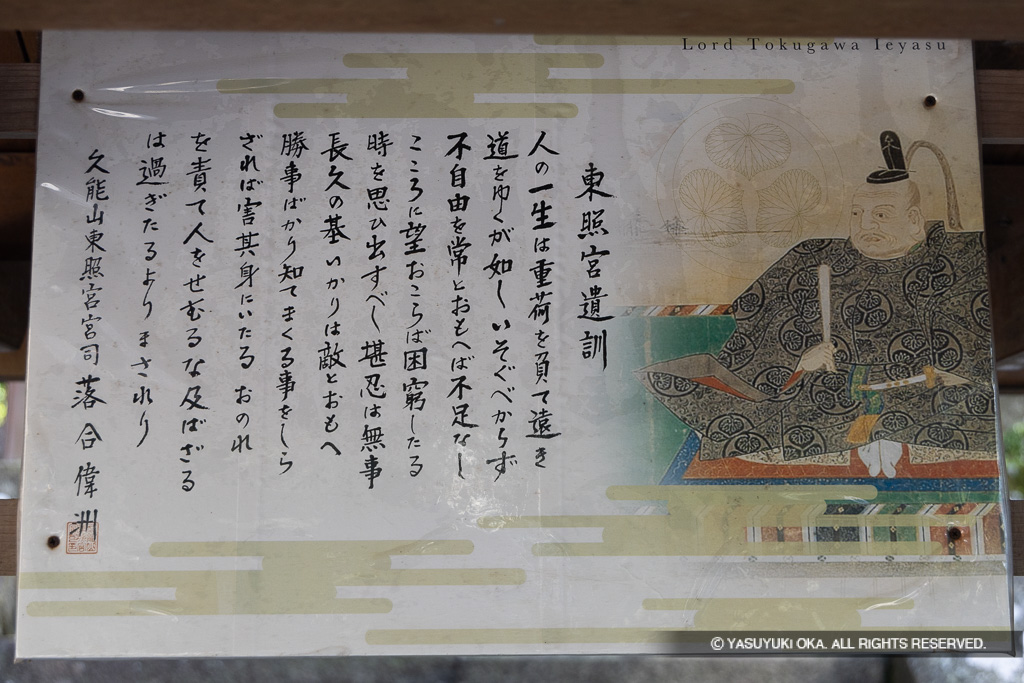 Lord Tokugawa Ieyasu
東照宮遺訓
人の一生は重荷を負て遠き
道をゆくが如しいそぐべからず
不自由を常とおもへば不足なし
こころに望おこらば困窮したる
時を思ひ出すべし堪忍は無事
長久の基いかりは敵とおもへ
勝事ばかり知てまくる事をしら
ざれば害其身にいたるおのれ
を責て人をせむるな及ばざる
は過ぎたるよりまされり
久能山東照宮宮司落合偉洲
© YASUYUKI OKA. ALL RIGHTS RESERVED.